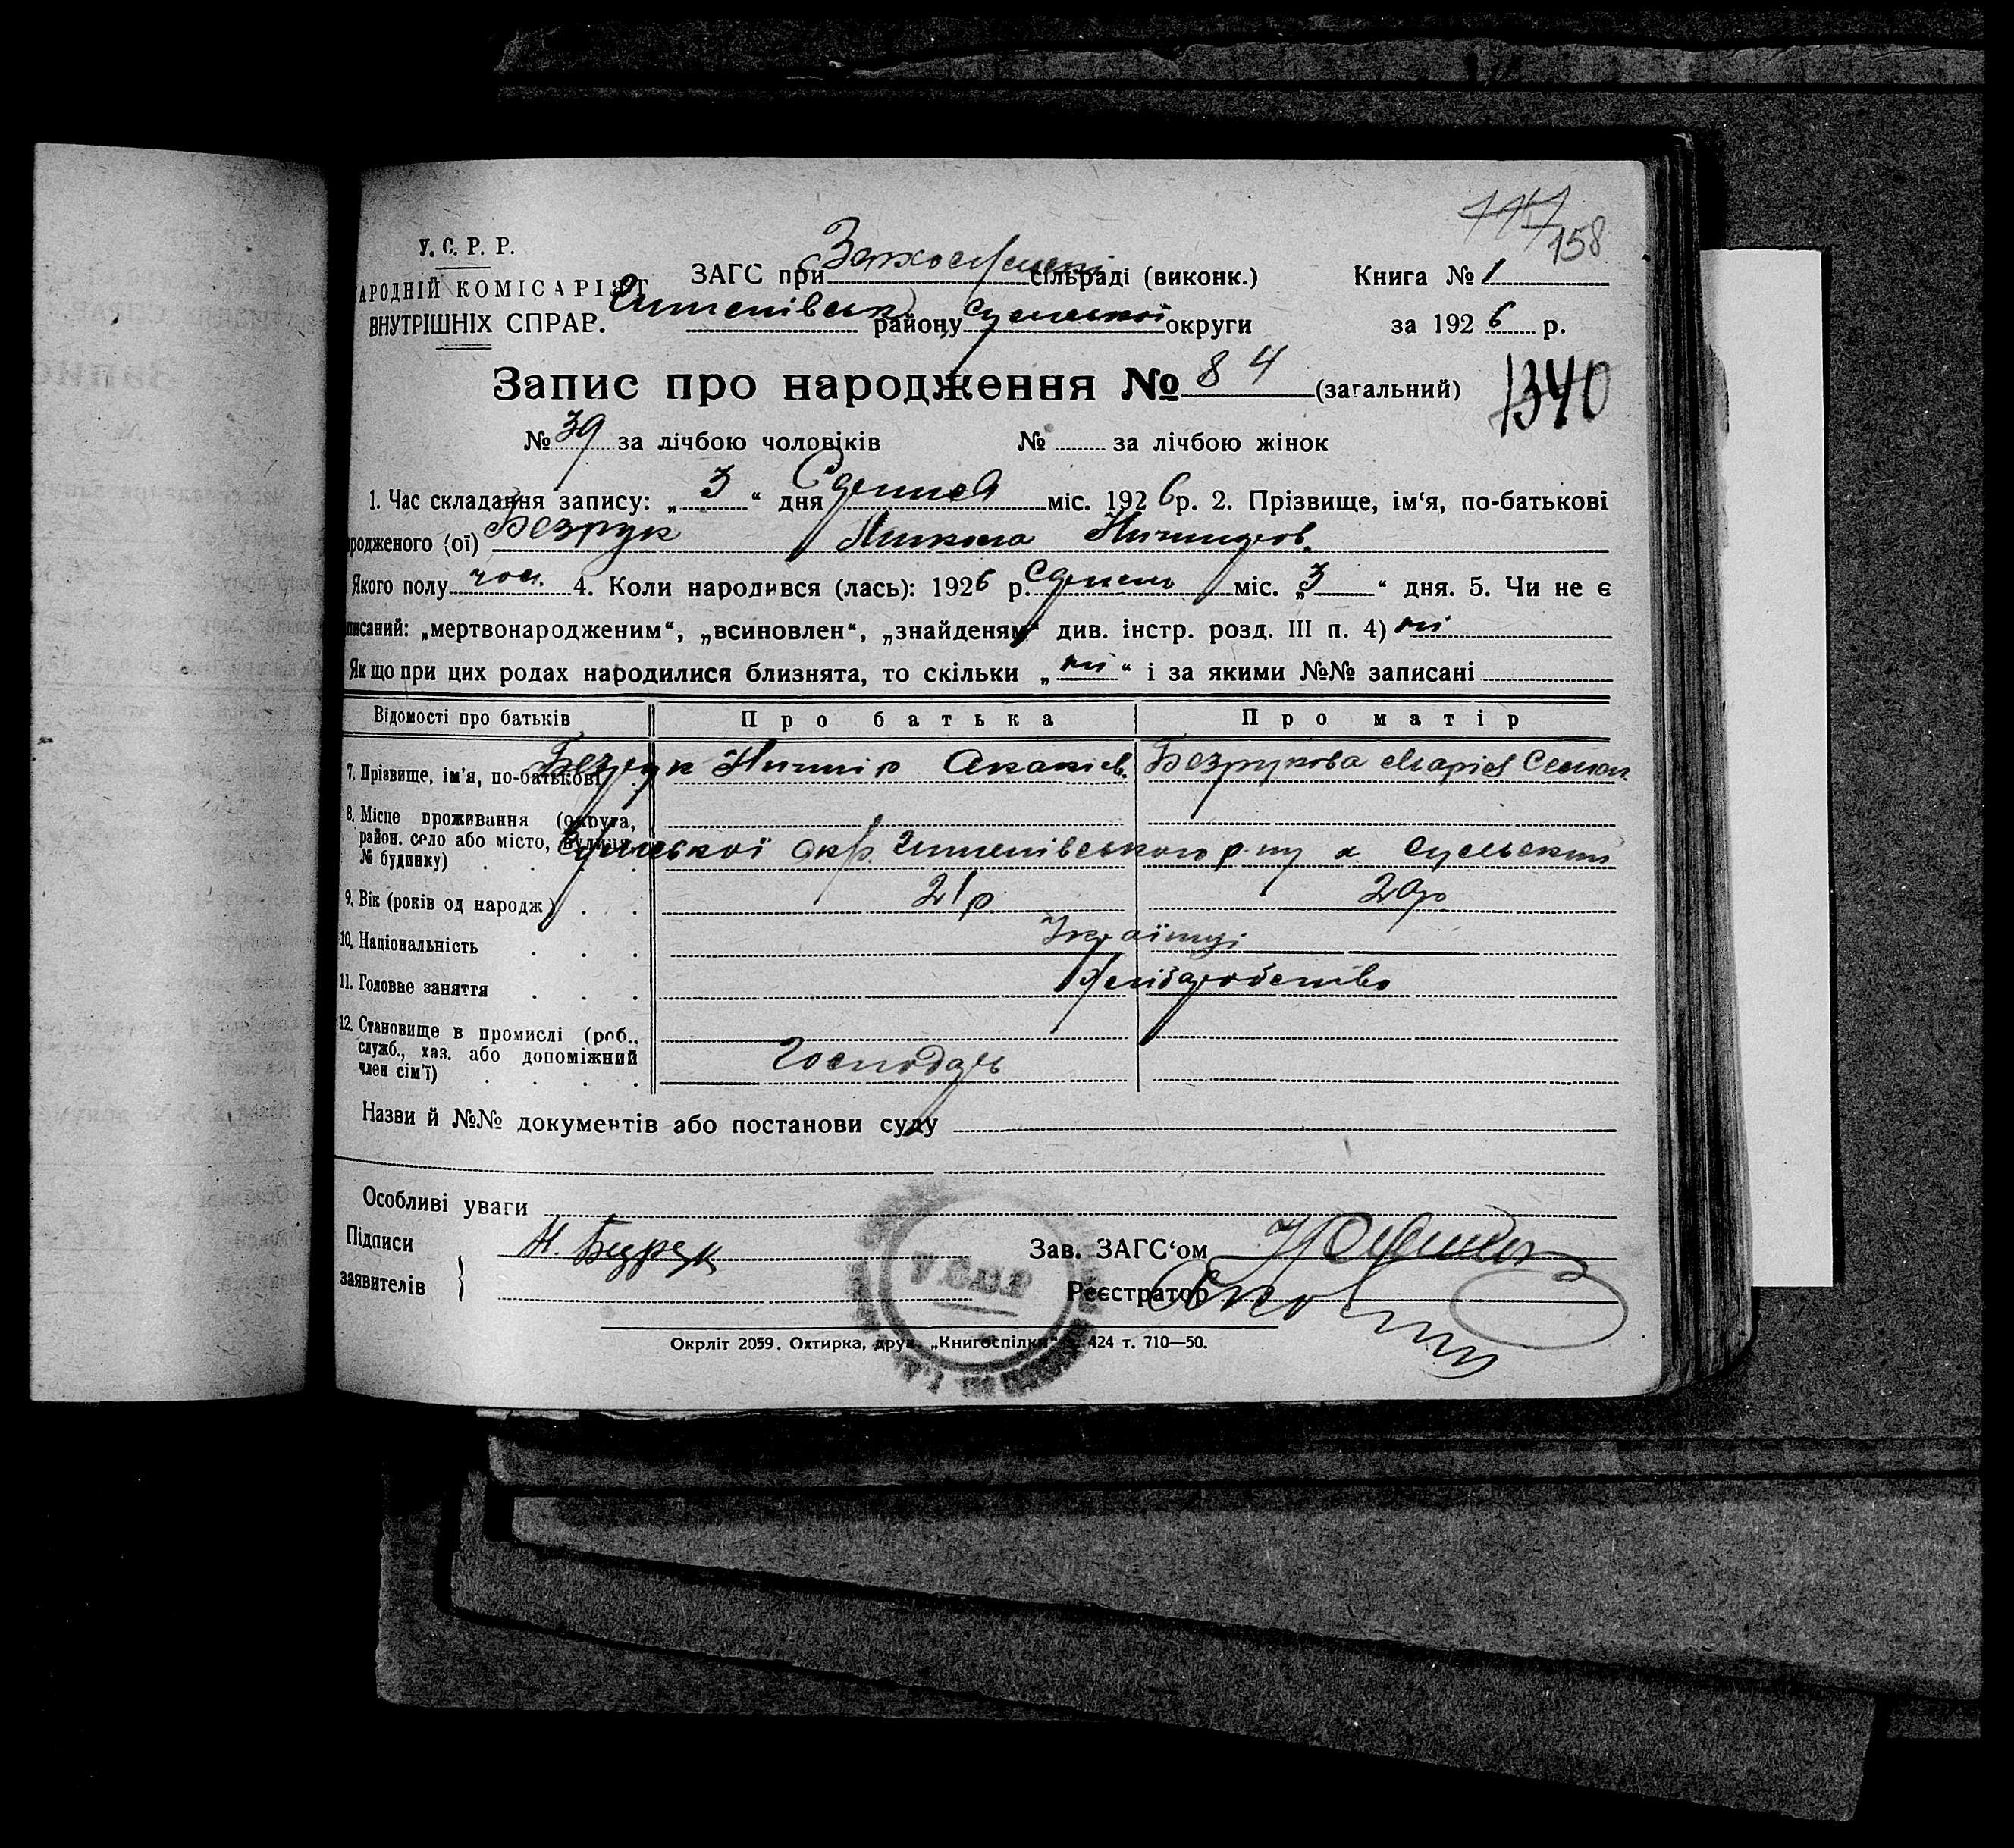 158
У. С. Р. Р.
ЗАГС при сільраді (виконк.) Книга № 1
АРОДНІЙ КОМІСАРІЯТ
ВНУТРІШНІХ СПРАВ. району Сумської округи за 1926 р.
Запис про народження № 84 (загальний) 1340
№ 39 за лічбою чоловіків № за лічбою жінок
1. Час складання запису: „3“ дня Січня міс. 1926 р. 2. Прізвище, ім‘я, по-батькові
родженого (ої) Безрук Микола
Якого полу чол. 4. Коли народився (лась): 1926 р. Січень міс. „3“ дня. 5. Чи не є
писаний: „мертвонародженим“, „всиновлен“, „знайденям“ див. інстр. розд. III п. 4) ні
Якщо при цих родах народилися близнята, то скільки „ні“ і за якими №№ записані
Відомості про батьків Про батька Про матір
7. Прізвище, ім‘я, по-батькові Безрук Акакієв. Безрукова Марія Семен.
8. Місце проживання (округа,
район. село або місто, вулиця,
№ будинку) Сумської окр. р-ну х.
9. Вік (років од народж.) 21 р. 20 р.
10. Національність Українці
11. Головне заняття Хліборобство
12. Становище в промислі (роб.,
служб., хаз. або допоміжний
член сім‘ї) Господарь
Назви й №№ документів або постанови суду
Особливі уваги
Підписи
заявителів Н. Безрук Зав. ЗАГС‘ом
Реєстратор
Окрліт 2059. Охтирка, друк. „Книгоспілки“ 424 т. 710—50.